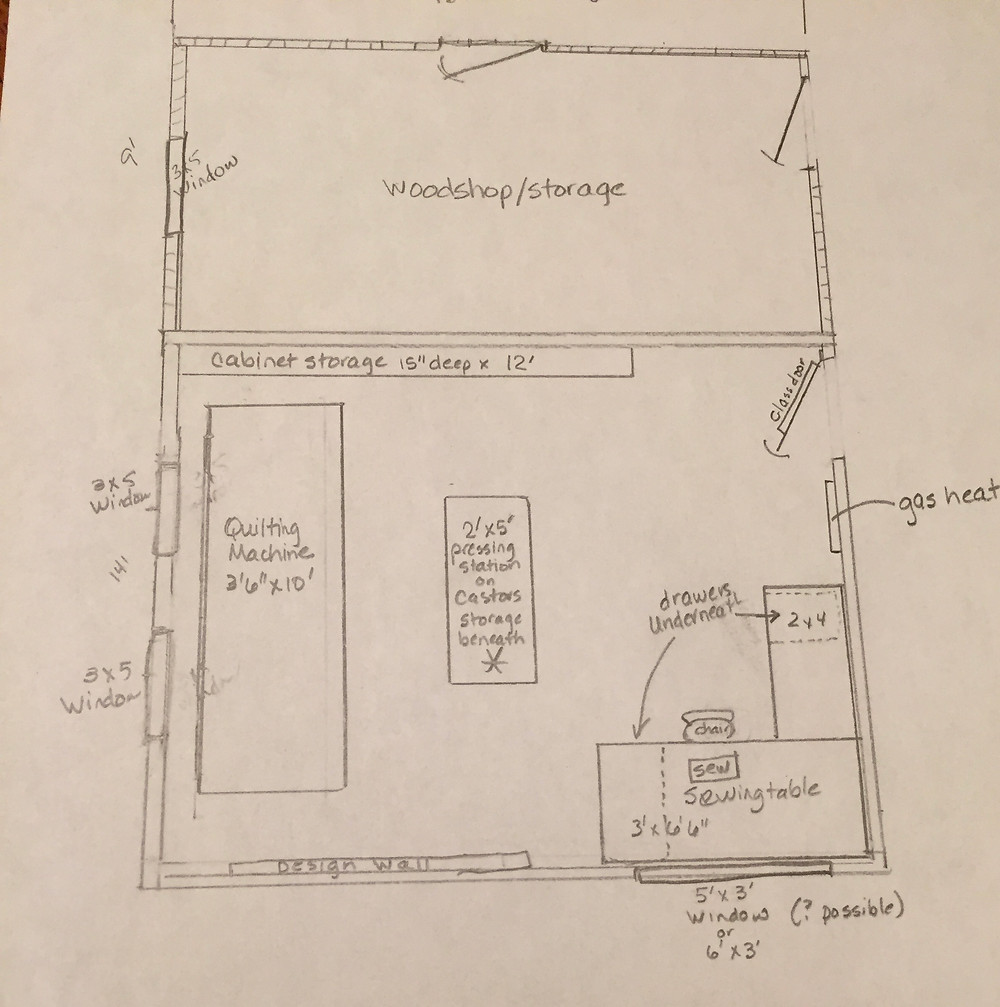 9'
3x5
Window
Woodshop/storage
Cabinet storage 15" deep x 12'
Glass door
3x5
Window
gas heat
Quilting
Machine
3'6" x 10'
2'x5'
pressing
station
on
Castors
storage
beneath
14'
drawers
underneath
2x4
3x5
Window
chair
sew
Sewing table
3'x6'6"
Design Wall
5'x3'
Window (? possible)
or
6'x3'